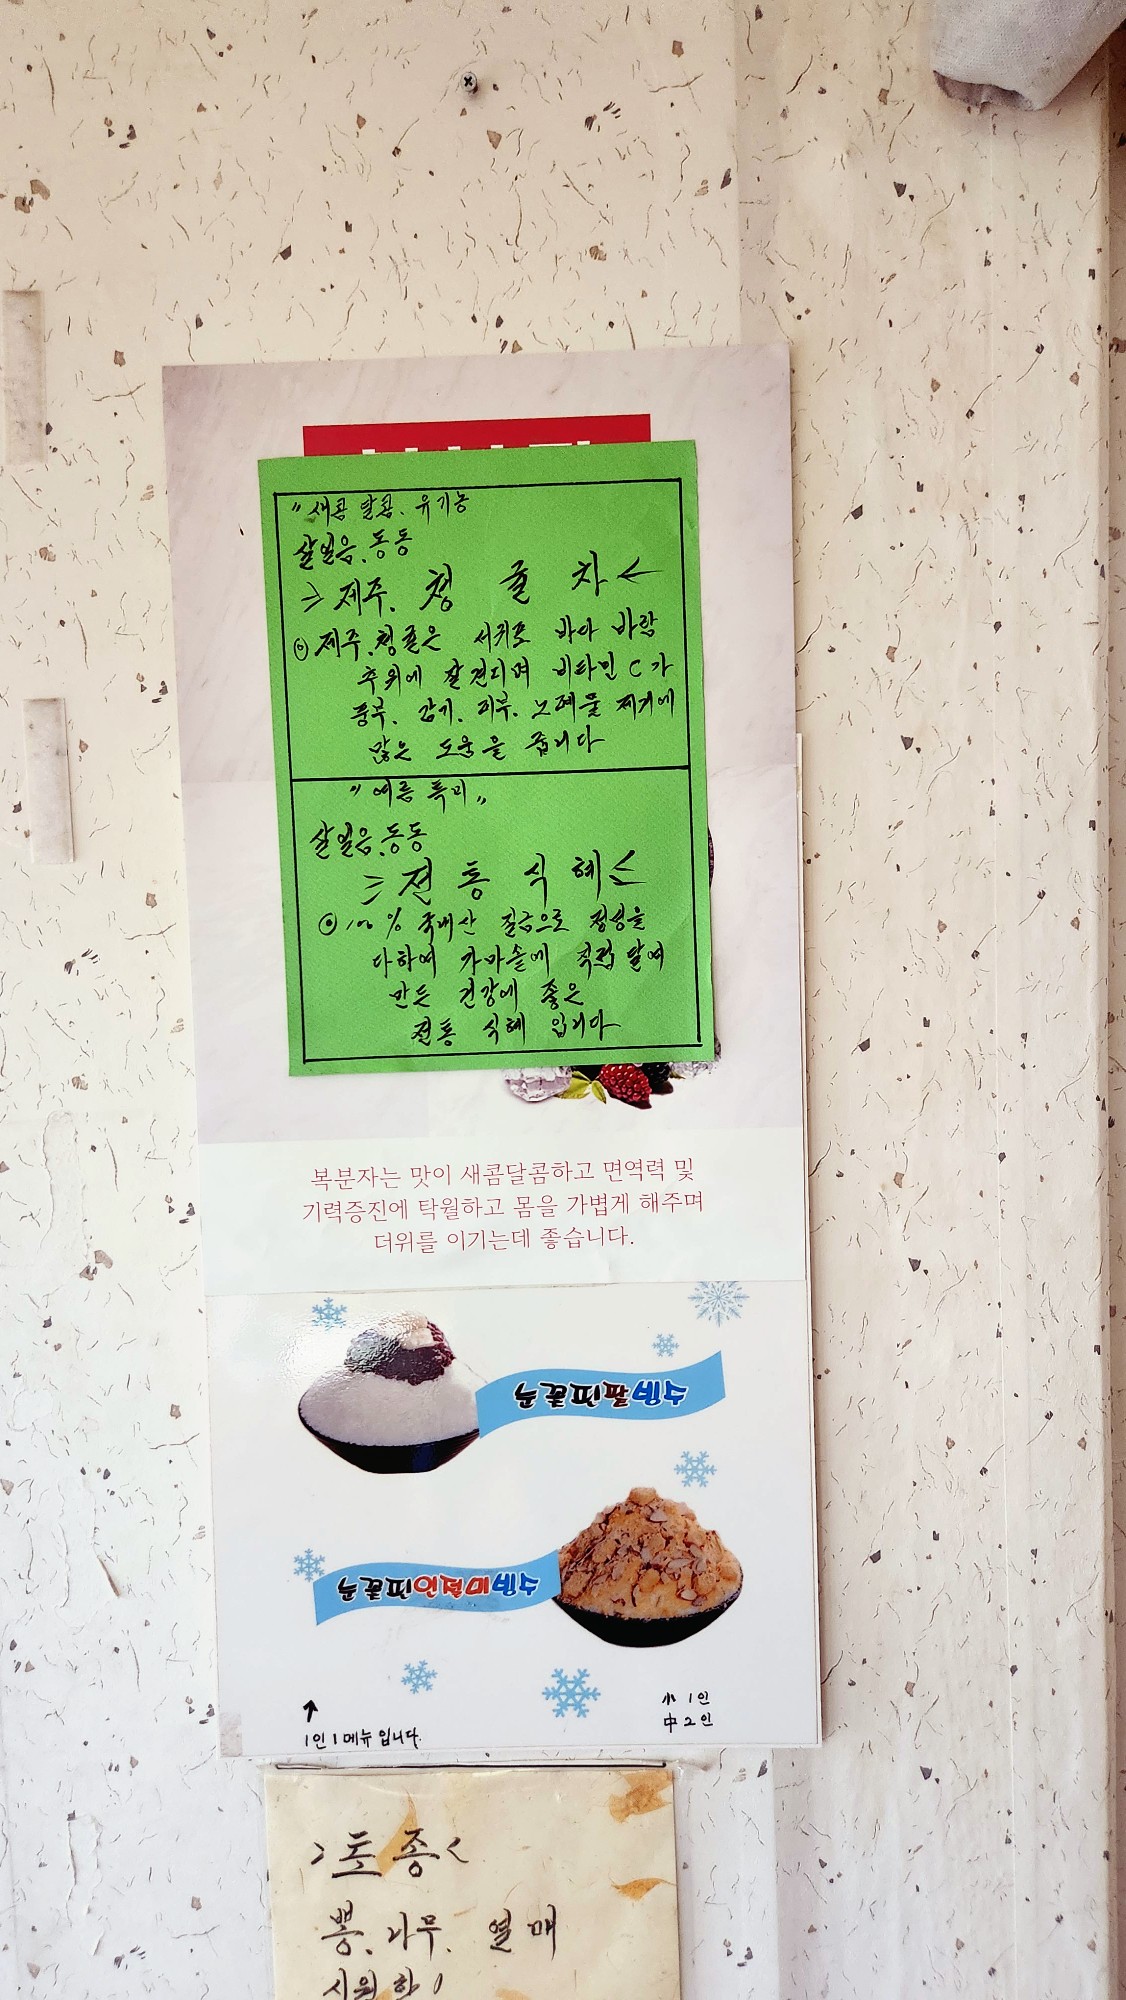 "새콤 달콤. 유기농
살얼음.동동
⇒제주. 청 귤 차←
◎제주.청귤은 서귀포 바다 바람
추위에 잘견디며 비타민 C가
풍부. 감기. 피부. 노폐물 제거에
많은 도움을 줍니다
"여름 특미"
살얼음.동동
⇒전 통 식 혜⇐
◎100% 국내산 질금으로 정성을
다하여 가마솥에 직접 달여
만든 건강에 좋은
전통 식혜 입니다
복분자는 맛이 새콤달콤하고 면역력 및
기력증진에 탁월하고 몸을 가볍게 해주며
더위를 이기는데 좋습니다.
눈꽃피팥빙수
눈꽃피인절미빙수
小 1인
↑
中 2인
1인 1메뉴 입니다.
>토종<
뽕.나무. 열매
시원한